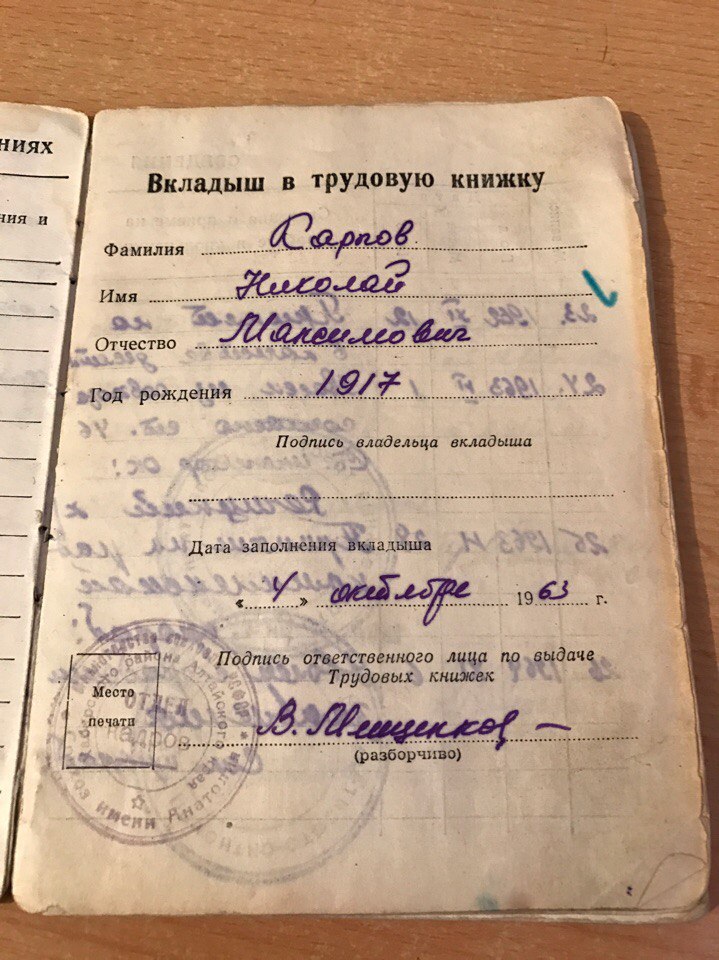 ниях
ния и
Вкладыш в трудовую книжку
Фамилия Карпов
Имя Николай
Отчество Максимович
Год рождения 1917
Подпись владельца вкладыша
Дата заполнения вкладыша
« 4 » октября 1963 г.
Подпись ответственного лица по выдаче
Трудовых книжек
Место
печати
В. Мещенков
(разборчиво)
ОТДЕЛ
кадров
района Алтайского края
имени Анато